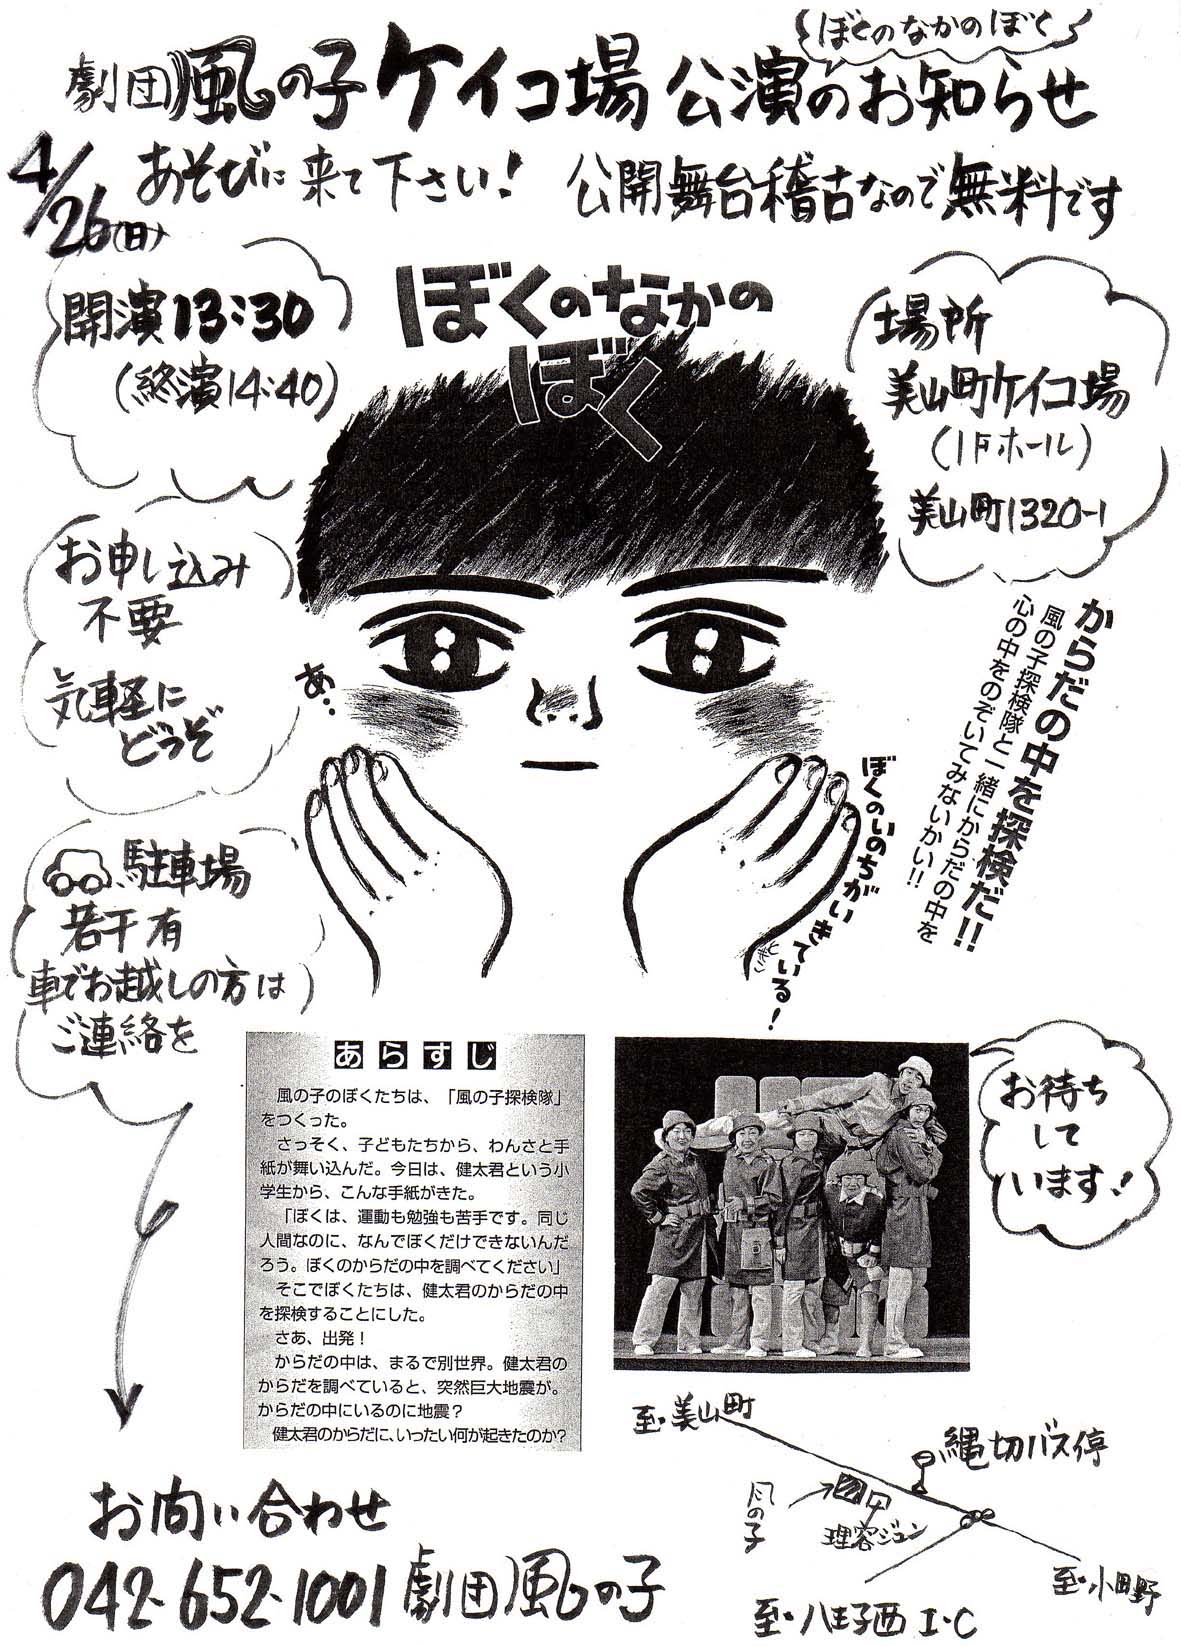 ぼくのなかのぼく
劇団風の子ケイコ場 公演のお知らせ
4/26(日)
あそびに来て下さい! 公開舞台稽古なので無料です
開演13:30
(終演14:40)
ぼくのなかの
ぼく
場所
美山町ケイコ場
(1Fホール)
美山町1320-1
お申し込み
不要
気軽に
どうぞ
あ…
からだの中を探検だ!!
風の子探検隊と一緒にからだの中を
心の中をのぞいてみないかい!!
ぼくのいのちがいきている!
ドキン
駐車場
若干有
車でお越しの方は
ご連絡を
あらすじ
風の子のぼくたちは、「風の子探検隊」
をつくった。
さっそく、子どもたちから、わんさと手
紙が舞い込んだ。今日は、健太君という小
学生から、こんな手紙がきた。
「ぼくは、運動も勉強も苦手です。同じ
人間なのに、なんでぼくだけできないんだ
ろう。ぼくのからだの中を調べてください」
そこでぼくたちは、健太君のからだの中
を探検することにした。
さあ、出発!
からだの中は、まるで別世界。健太君の
からだを調べていると、突然巨大地震が。
からだの中にいるのに地震?
健太君のからだに、いったい何が起きたのか?
お待ち
して
います!
至・美山町
縄切バス停
風の子
理容ジュン
至・小田野
至・八王子西I・C
お問い合わせ
042-652-1001 劇団風の子